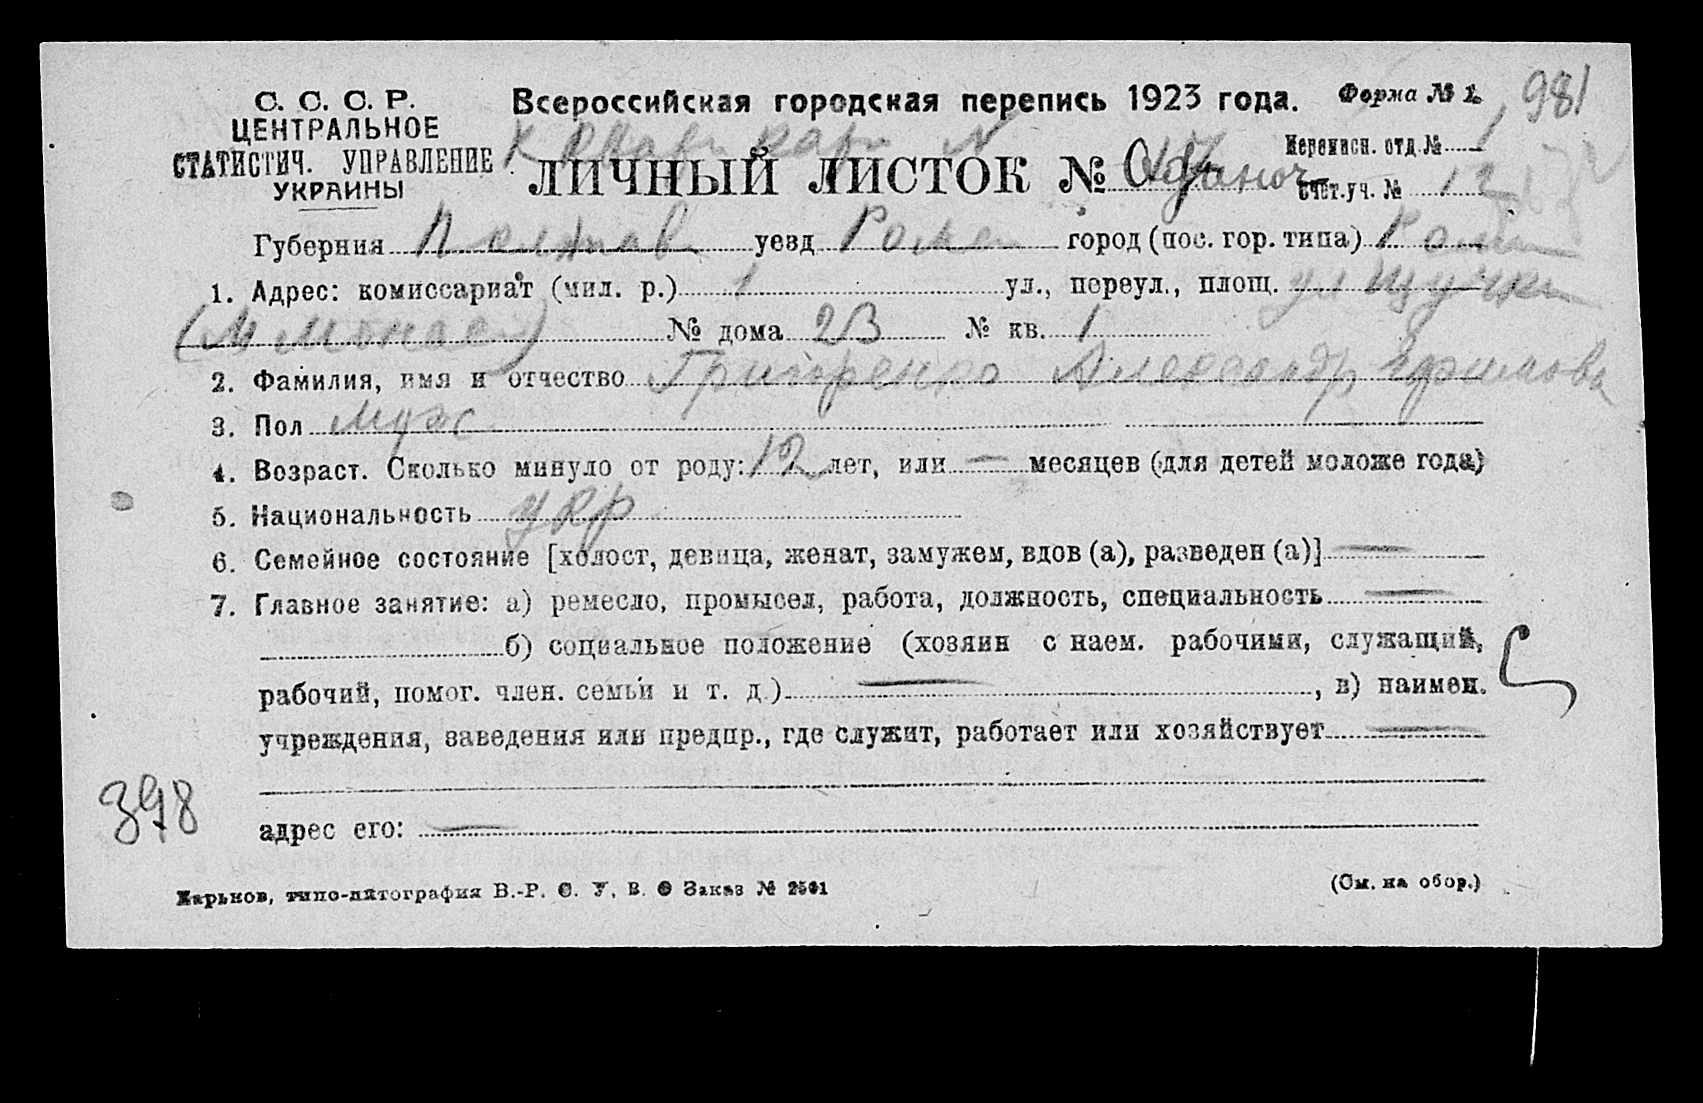 С. С. С. Р.
ЦЕНТРАЛЬНОЕ
СТАТИСТИЧ. УПРАВЛЕНИЕ
УКРАИНЫ
Всероссийская городская перепись 1923 года.
Форма № 1.
981
К квар карт N
ЛИЧНЫЙ ЛИСТОК №
Переписн. отд. № 1
Счет. уч. № 12
Губерния Полтав уезд Ромен город (пос. гор. типа) Ромн
1. Адрес: комиссариат (мил. р.) 1 ул., переул., площ. ул Щучки
№ дома 23 № кв. 1
2. Фамилия, имя и отчество Григоренко Александр Ефимов
3. Пол муж
4. Возраст. Сколько минуло от роду: 12 лет, или — месяцев (для детей моложе года)
5. Национальность укр
6. Семейное состояние [холост, девица, женат, замужем, вдов (а), разведен (а)] —
7. Главное занятие: а) ремесло, промысел, работа, должность, специальность —
б) социальное положение (хозяин с наем. рабочими, служащий,
рабочий, помог. член. семьи и т. д.) —, в) наимен.
учреждения, заведения или предпр., где служит, работает или хозяйствует —
398
адрес его: —
Харьков, типо-литография В.-Р. С. У. В. О Заказ № 2501
(См. на обор.)